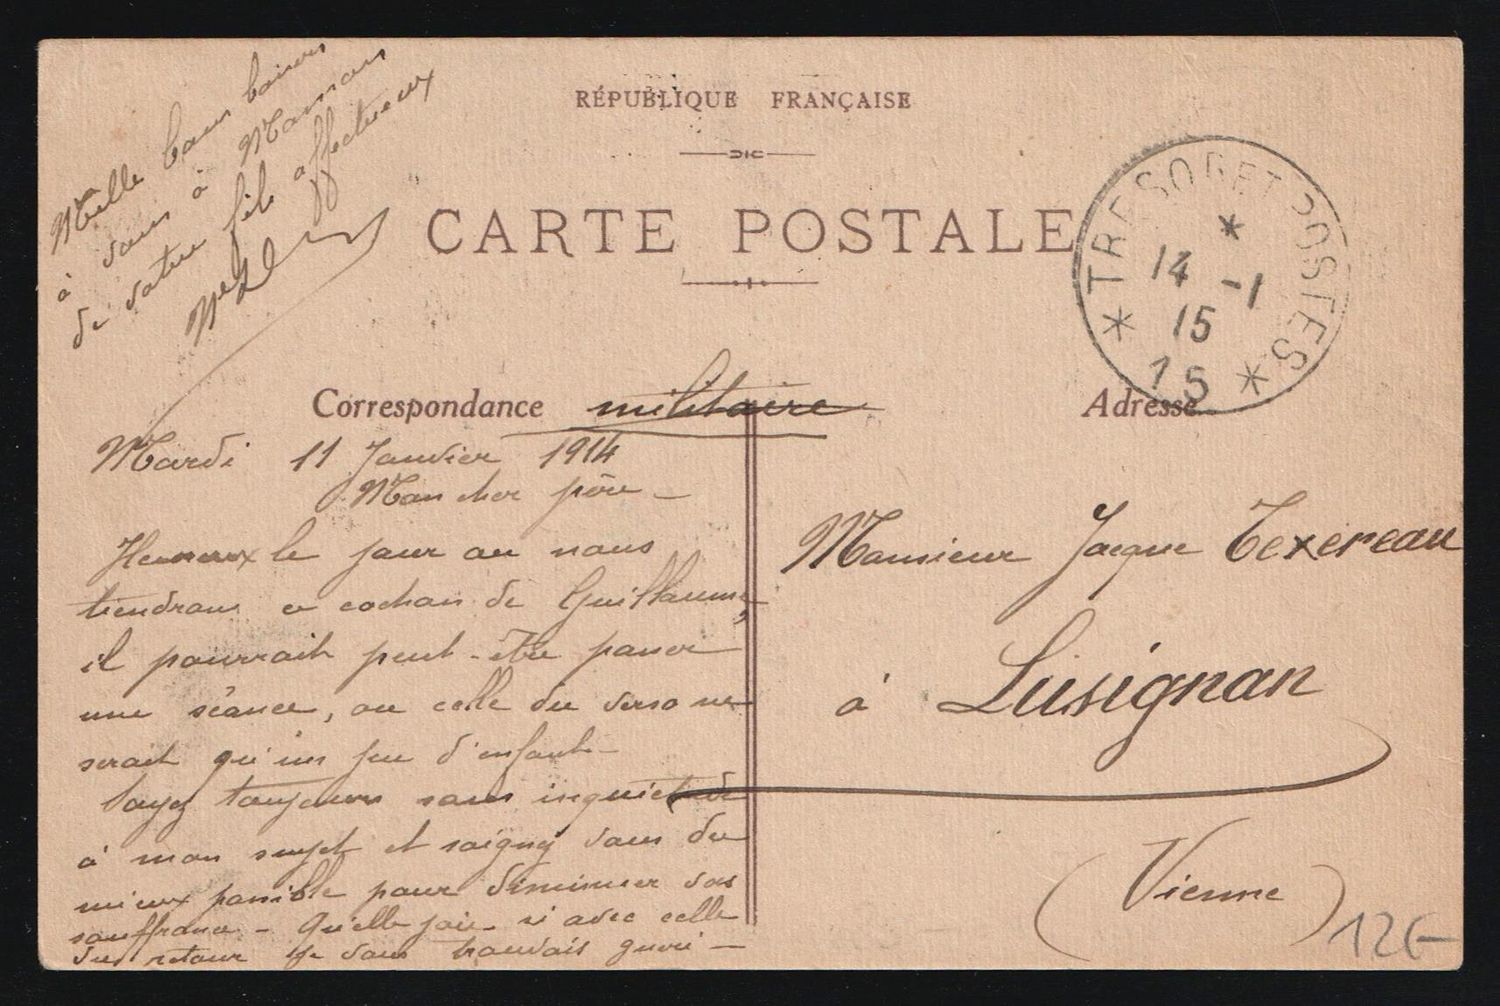 RÉPUBLIQUE FRANÇAISE
CARTE POSTALE
TRESOR ET POSTES
14 -1
15
15
Correspondance militaire
Adresse
Mardi 11 Janvier 1914
Mon cher père -
Heureux le jour ou nous
tiendrons ce cochon de Guillaume,
il pourrait peut-être passer
une séance, ou celle du verso ne
serait qu'un jeu d'enfant-
Soyez toujours sans inquiétude
à mon sujet et soignez vous du
mieux possible pour diminuer vos
souffrance - Quelle joie si avec celle
du retour je vous trouvais guéri -
Mille bons baisers
à vous à Maman
de votre fils affectueux
Monsieur Jacque Texereau
à Lusignan
(Vienne)
12€-